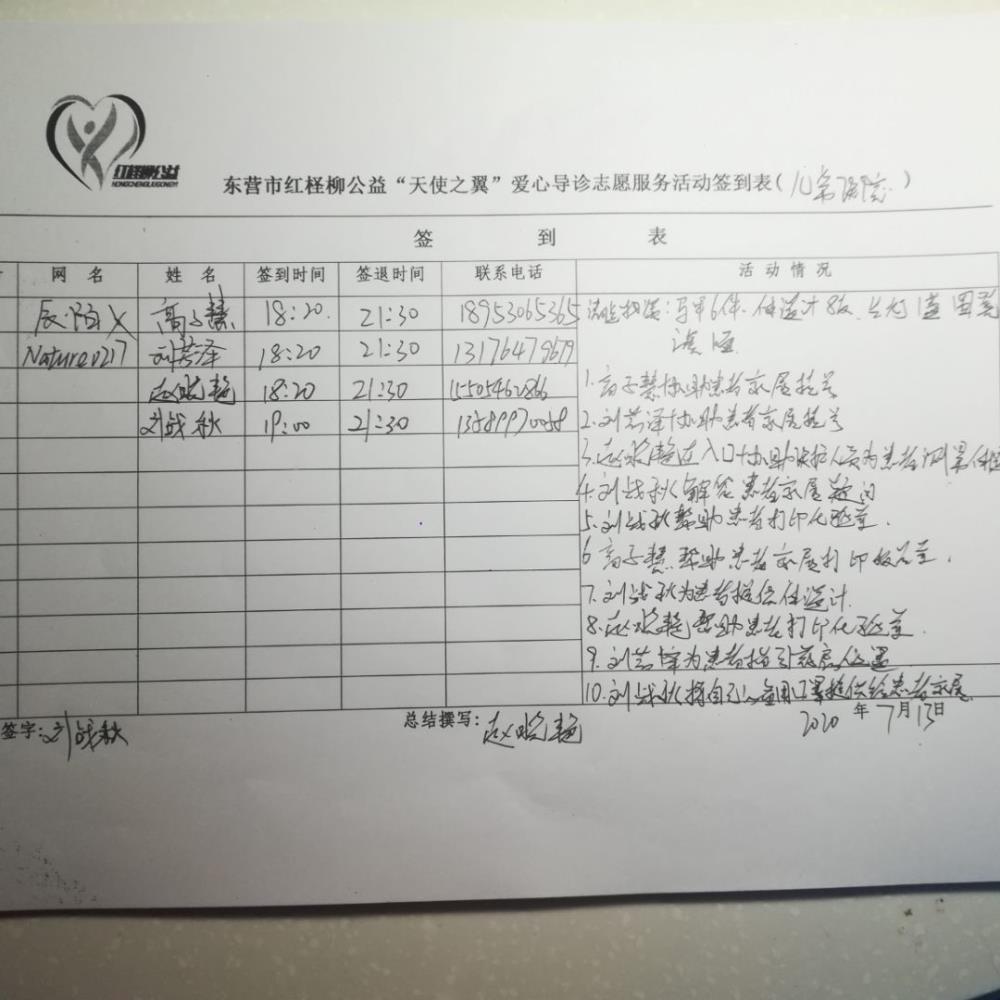 红柽柳公益
HONGCHENGLIUGONGYI
东营市红柽柳公益“天使之翼”爱心导诊志愿服务活动签到表(儿童医院)
签 到 表
网 名 姓 名 签到时间 签退时间 联系电话 活动情况
高子慧 18:20 21:30 18953065365 马甲6件.体温计8支
Nature0217 刘芳泽 18:20 21:30 13176479679
赵晓艳 18:20 21:30 15505462866
刘战秋 19:00 21:30 13589970058
1.高子慧协助患者家属挂号
2.刘芳泽协助患者家属挂号
3.赵晓艳在入口协助医护人员为患者测量体温
4.刘战秋解答患者家属疑问
5.刘战秋帮助患者打印化验单.
6 高子慧帮助患者家属打印报告单.
7.刘战秋为患者提供体温计
8.赵晓艳帮助患者打印化验单.
9.刘芳泽为患者指引药房位置
10.刘战秋将自己备用口罩提供给患者家属
签字:刘战秋 总结撰写:赵晓艳 2020年7月13日